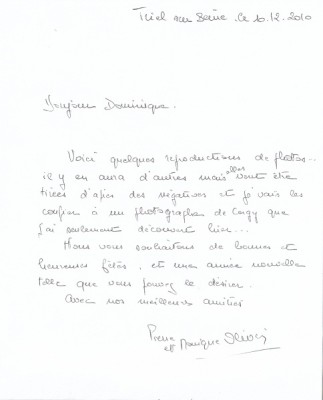 Triel sur Seine. Le 10.12.2010
Bonjour Dominique.
Voici quelques reproductions de photos..
il y en aura d'autres mais elles vont être
tirées d'après des négatives et je vais les
confier à un photographe de que
j'ai seulement découvert hier...
Nous vous souhaitons de bonnes et
heureuses fêtes, et une année nouvelle
telle que vous pouvez le désirer.
Avec nos meilleures amitiés
Pierre
et Monique